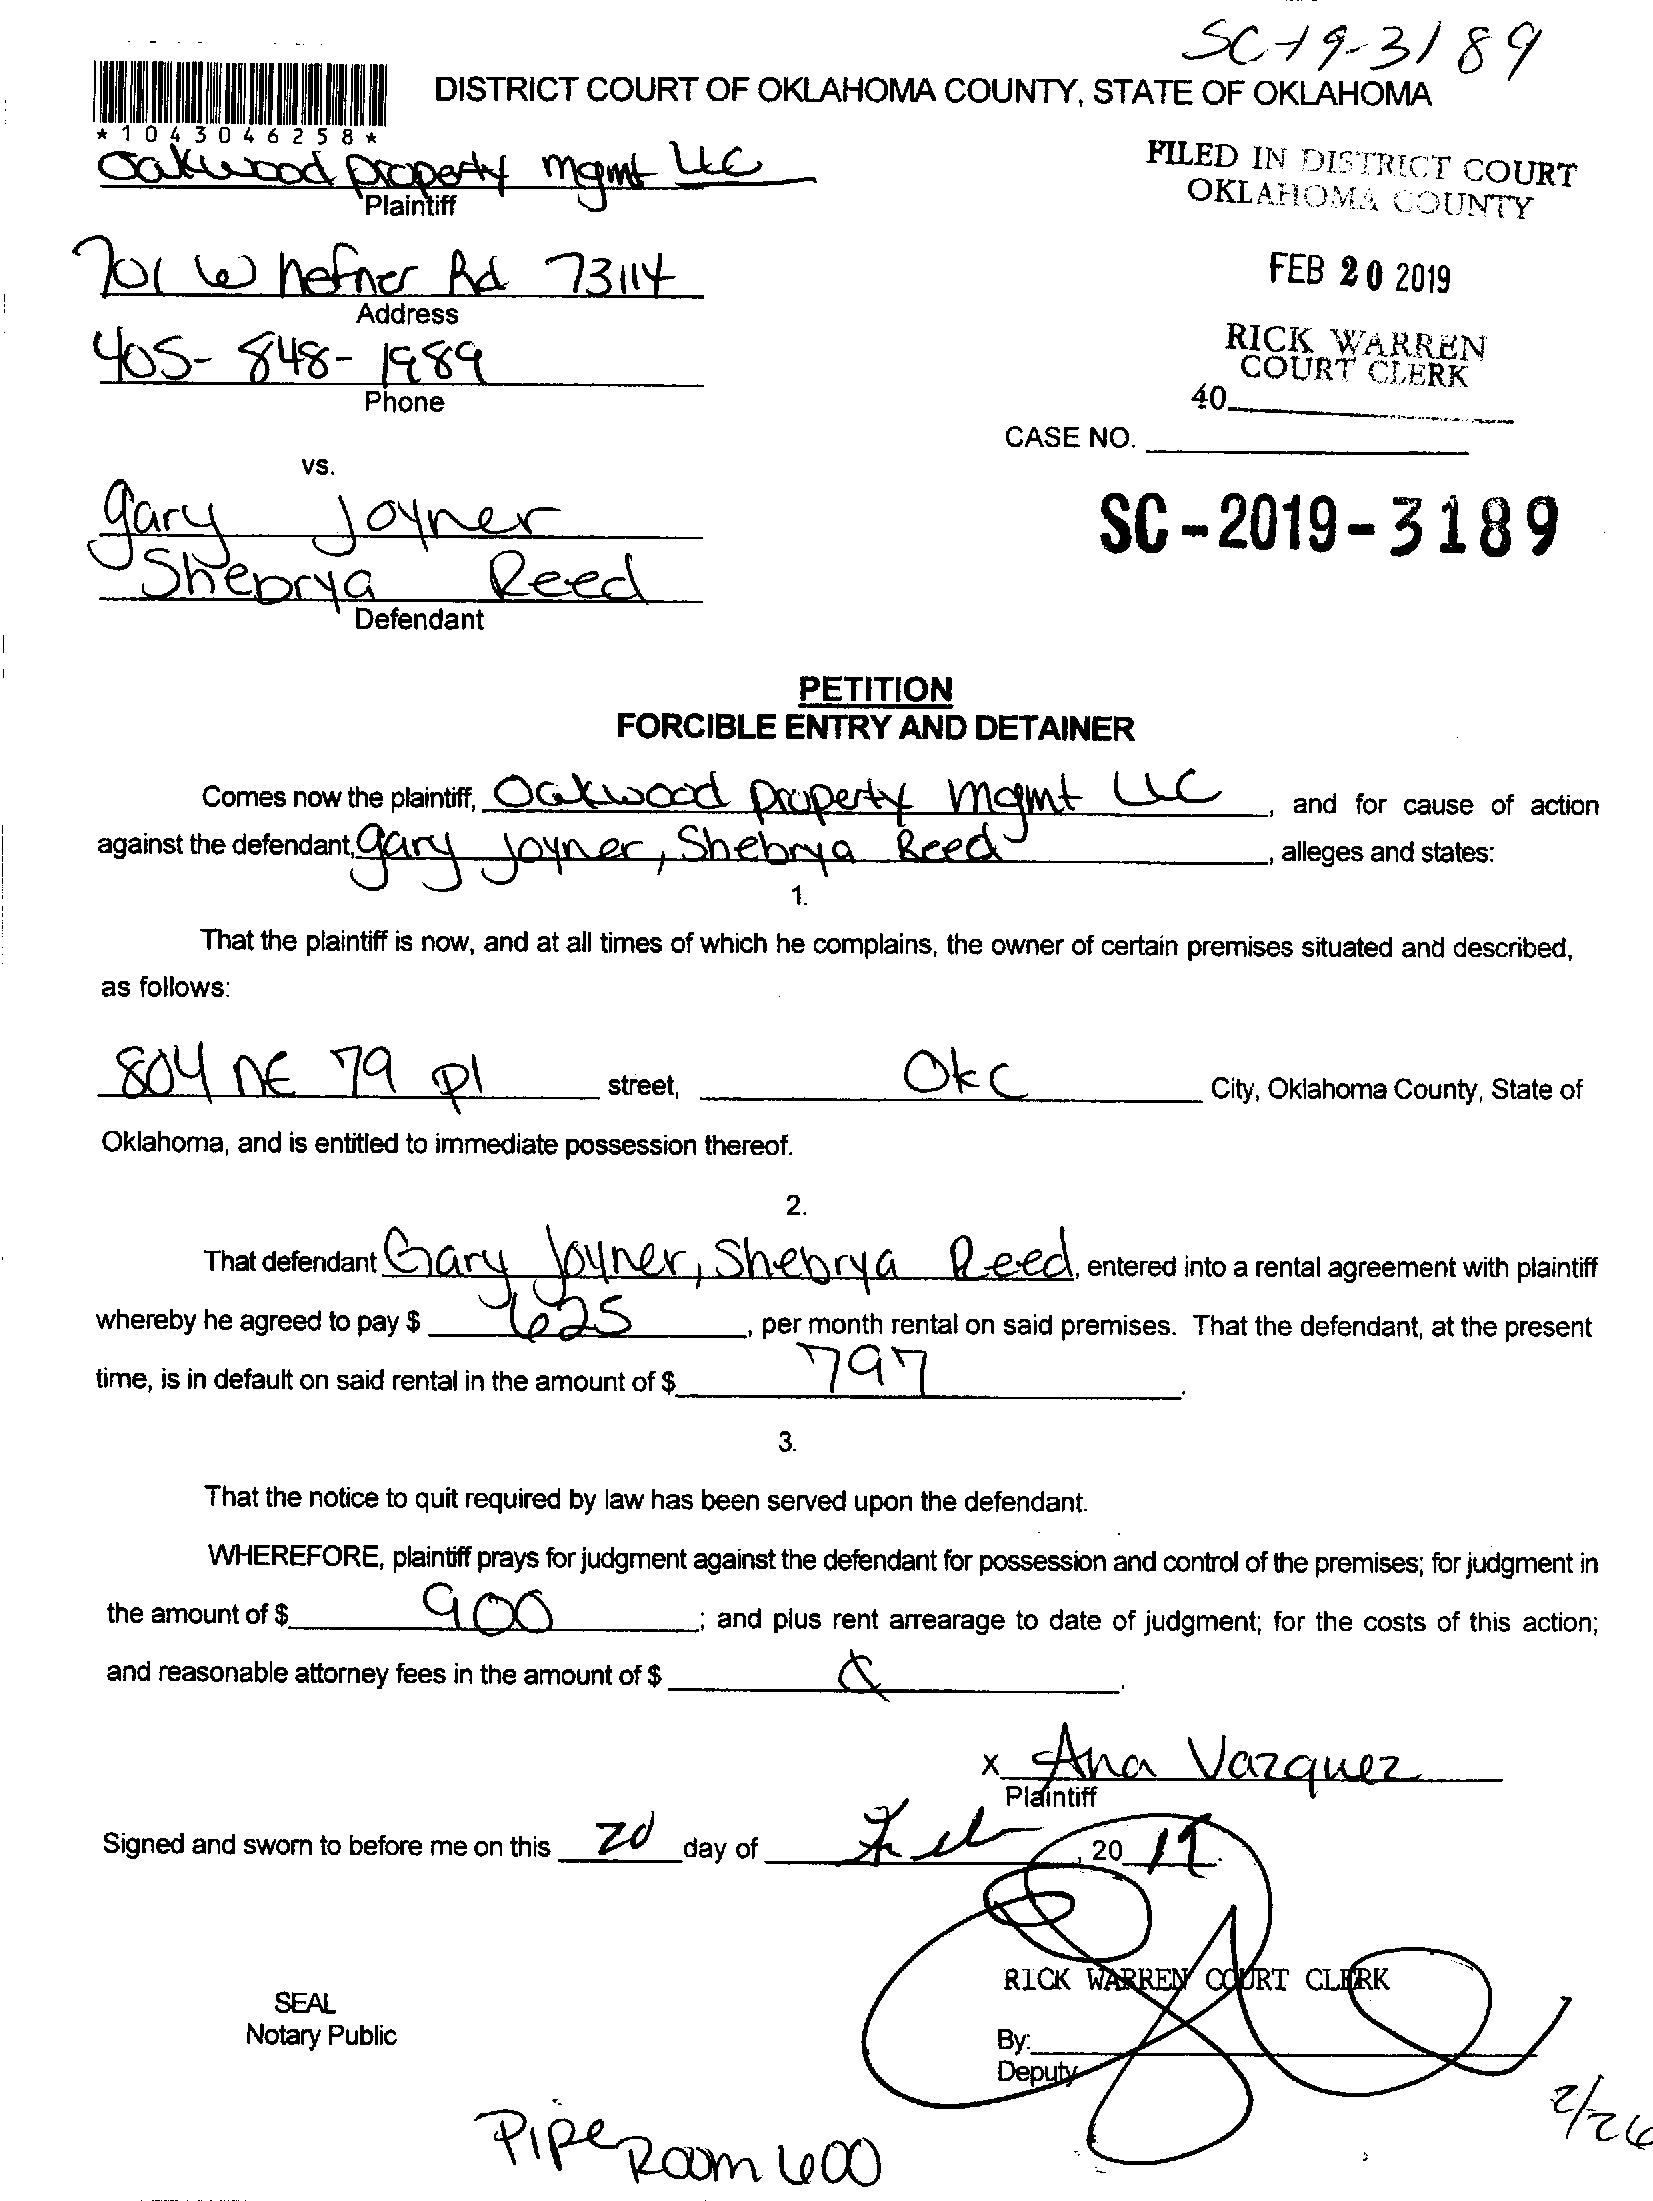 SC-19-3189
*1043046258*
DISTRICT COURT OF OKLAHOMA COUNTY, STATE OF OKLAHOMA
Oakwood property mgmt LLC
Plaintiff
FILED IN DISTRICT COURT
OKLAHOMA COUNTY
701 W hefner Rd 73114
Address
FEB 20 2019
405-848-1989
Phone
RICK WARREN
COURT CLERK
40
CASE NO.
vs.
gary Joyner
Shebrya Reed
Defendant
SC-2019-3189
PETITION
FORCIBLE ENTRY AND DETAINER
Comes now the plaintiff, Oakwood property mgmt LLC, and for cause of action
against the defendant, gary joyner, Shebrya Reed, alleges and states:
1.
That the plaintiff is now, and at all times of which he complains, the owner of certain premises situated and described,
as follows:
804 NE 79 pl street, OKC City, Oklahoma County, State of
Oklahoma, and is entitled to immediate possession thereof.
2.
That defendant Gary Joyner, Shebrya Reed, entered into a rental agreement with plaintiff
whereby he agreed to pay $ 625, per month rental on said premises. That the defendant, at the present
time, is in default on said rental in the amount of $ 797.
3.
That the notice to quit required by law has been served upon the defendant.
WHEREFORE, plaintiff prays for judgment against the defendant for possession and control of the premises; for judgment in
the amount of $ 900; and plus rent arrearage to date of judgment; for the costs of this action;
and reasonable attorney fees in the amount of $ .
x Ana Vazquez
Plaintiff
Signed and sworn to before me on this 20 day of Feb, 20 19.
RICK WARREN COURT CLERK
SEAL
Notary Public
By:
Deputy
2/26
Piper
Room 600